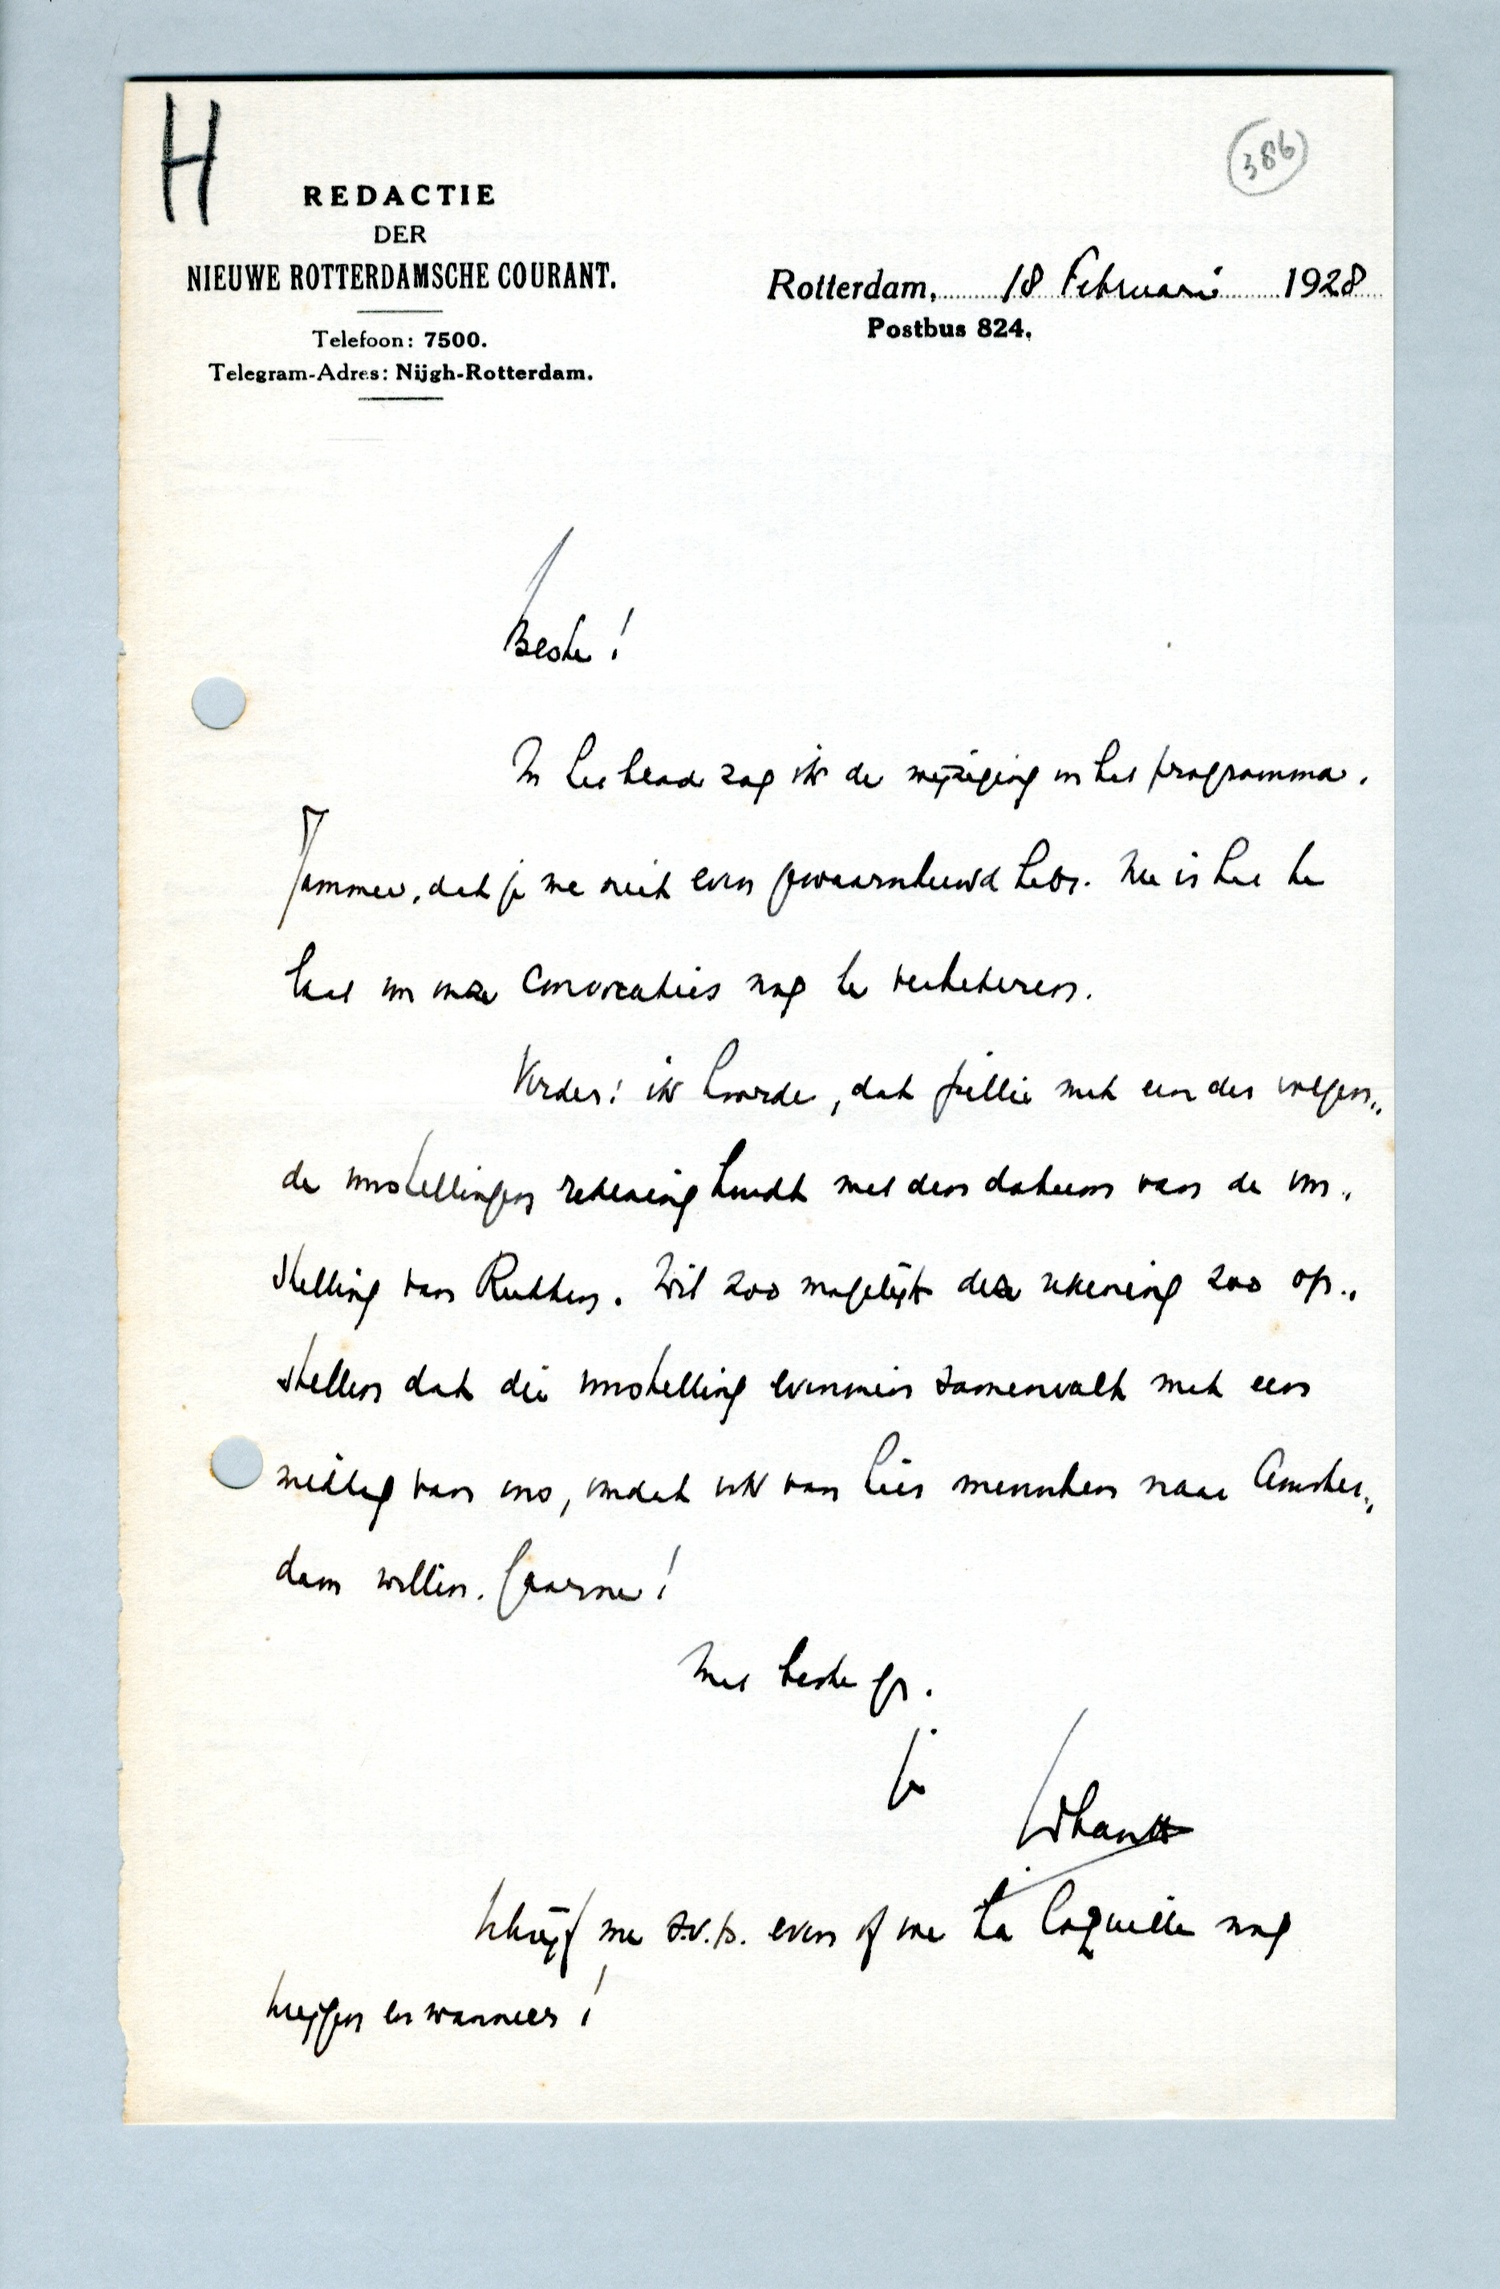 H
386
REDACTIE
DER
NIEUWE ROTTERDAMSCHE COURANT.
Telefoon: 7500.
Telegram-Adres: Nijgh-Rotterdam.
Rotterdam, 18 Februari 1928
Postbus 824.
Beste!
In het blad zag ik de wijziging in het programma.
Jammer, dat je me niet even gewaarschuwd hebt. Nu is het te
laat om onze convocaties nog te verbeteren.
Verder: ik hoorde, dat jullie met een der volgen„
de voorstellingen rekening houdt met den datum van de voor„
stelling van Ruttens. Wil zoo mogelijk deze rekening zoo op„
stellen dat die voorstelling evenmin samenvalt met een
middag van ons, omdat ook van hier menschen naar Amster„
dam willen. Gaarne!
Met beste gr.
je
Johan H
Schrijf me s.v.p. even of we La Coquille nog
krijgen en wanneer!